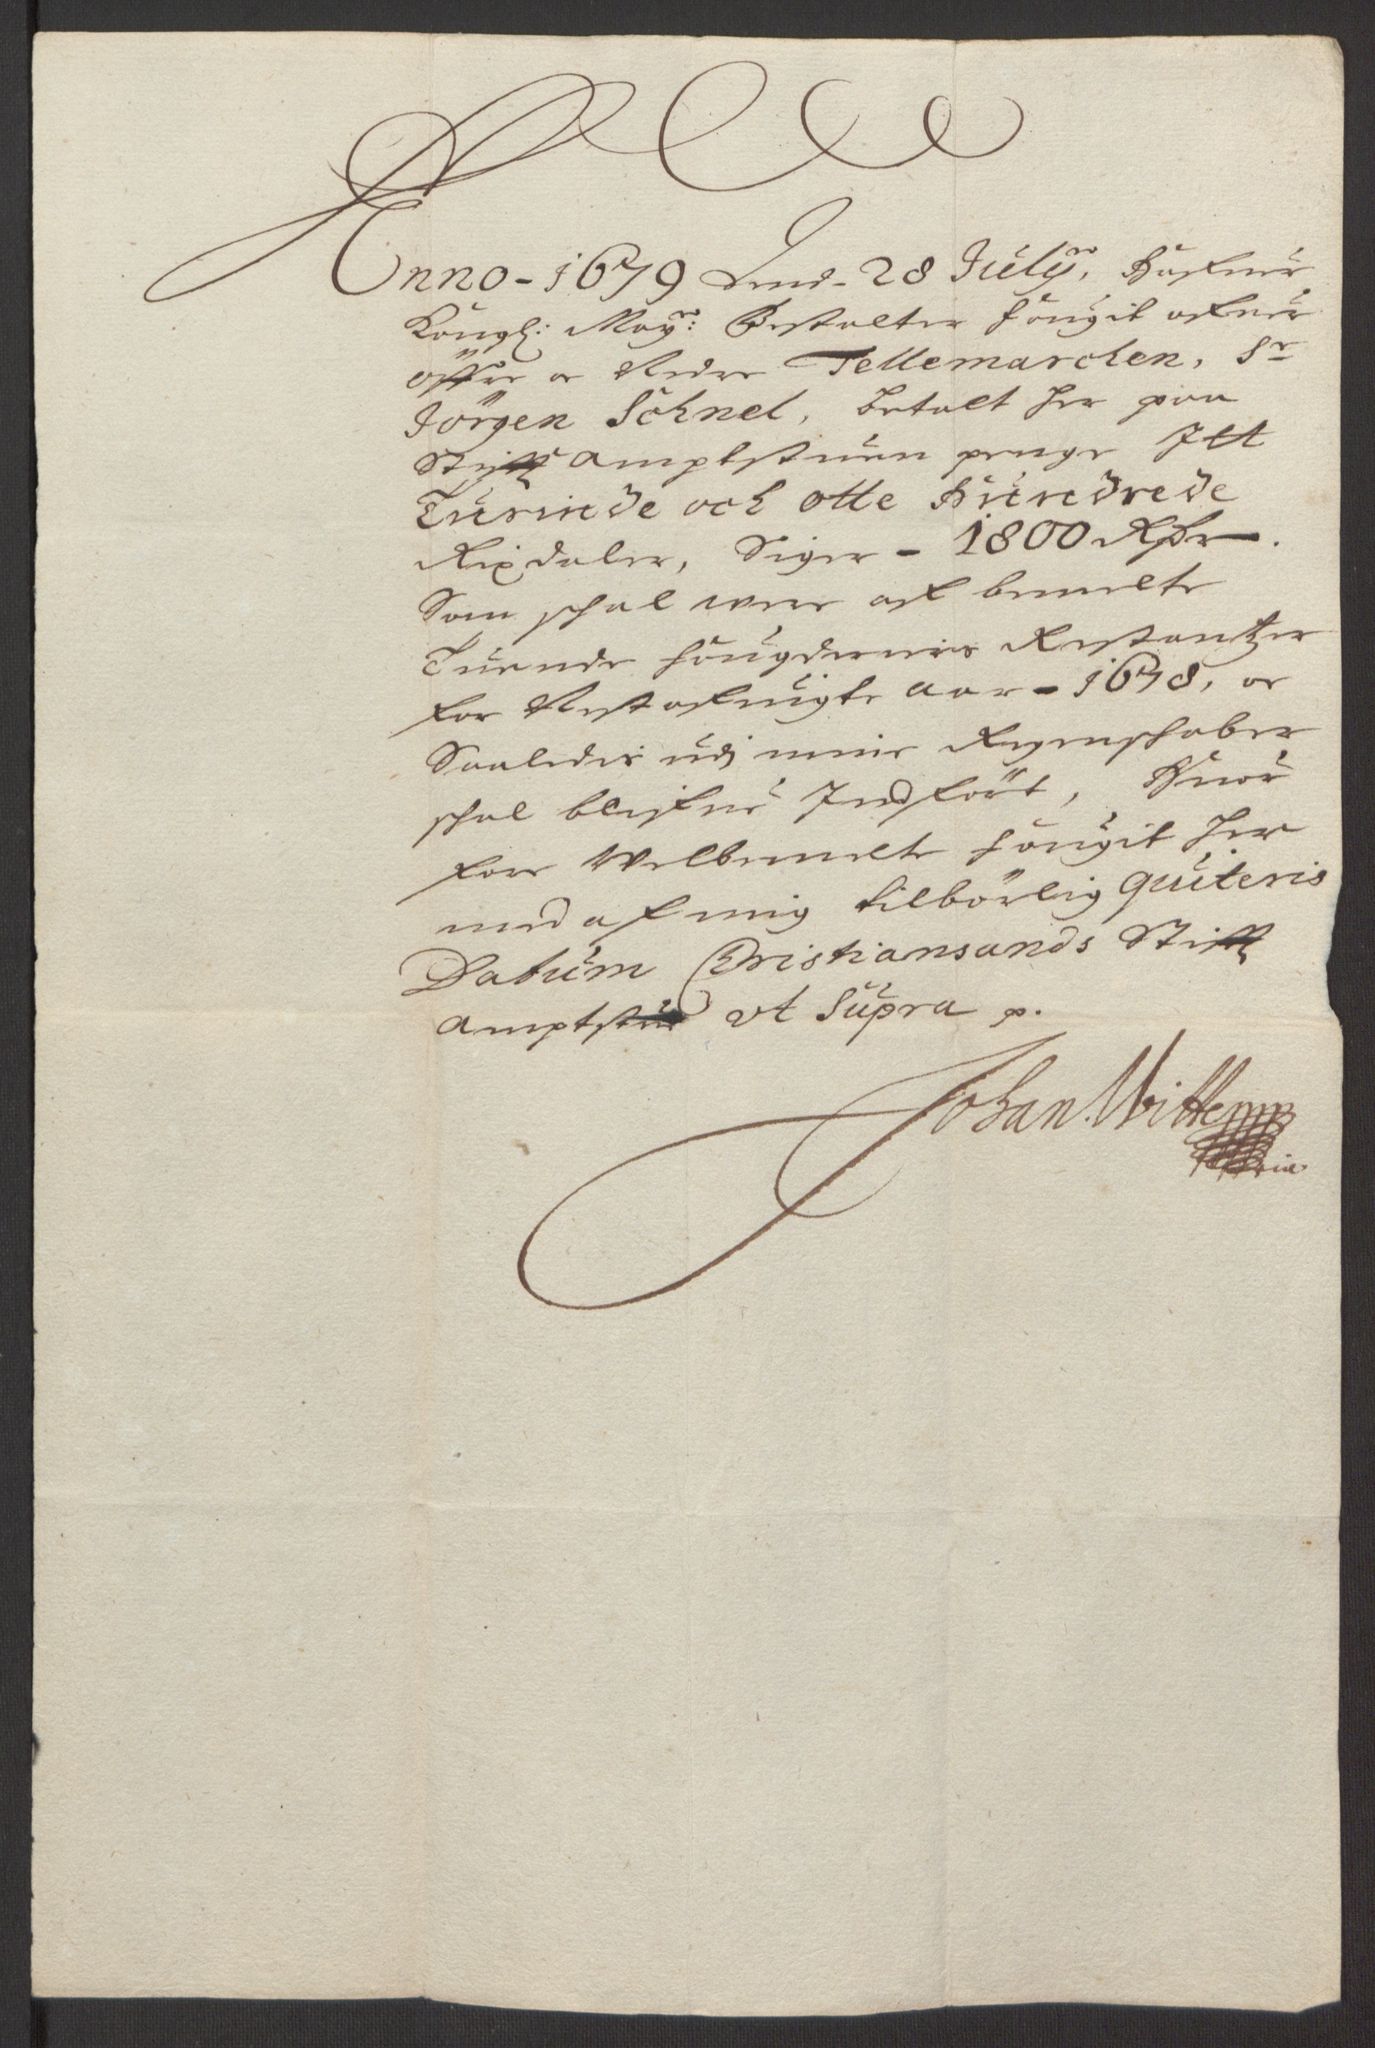 Anno - 1679 Dend - 28 Julÿ, Hafuer
Kongl: Mayt: Bestalter Fougit ofuer
öffre oc Nedre Tellemarchen, Sr
Jörgen Schnel, betalt her paa
Stiffts Amptstuen penge Itt
Tuesinde och otte Hundrede
Rixdaler, Siger - 1800 Rdr.
Som schal were af bemelte
Fougderiers Restantzer
for Nest afuigte Aar - 1678, oc
Saaledis udj mine Regenschaber
schal blifue Indfört, Huor
fore Velbemelte Fougit her
med af mig tilbörlig quiteris
Datum Christiansands Stiffts
Amptstue vt Supra p.
Johan Witte mp
ria